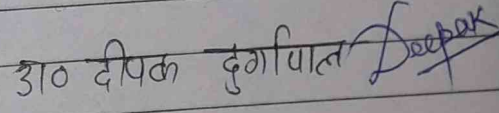 डा० दीपक दुर्गापाल Deepak